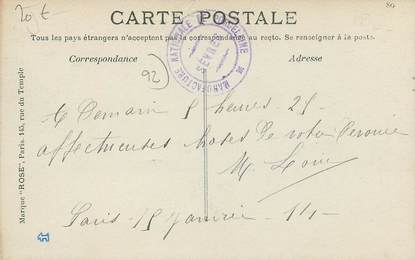 20 €
80
CARTE POSTALE
Tous les pays étrangers n'acceptent pas la correspondance au recto. Se renseigner à la poste.
Correspondance
Adresse
MANUFACTURE NATIONALE DE PORCELAINE
SÈVRES
92
Marque "ROSE", Paris. 145, rue du Temple
à Demain 5 heures 25
affectueuses de votre
M.
Paris 15 Janvier 14